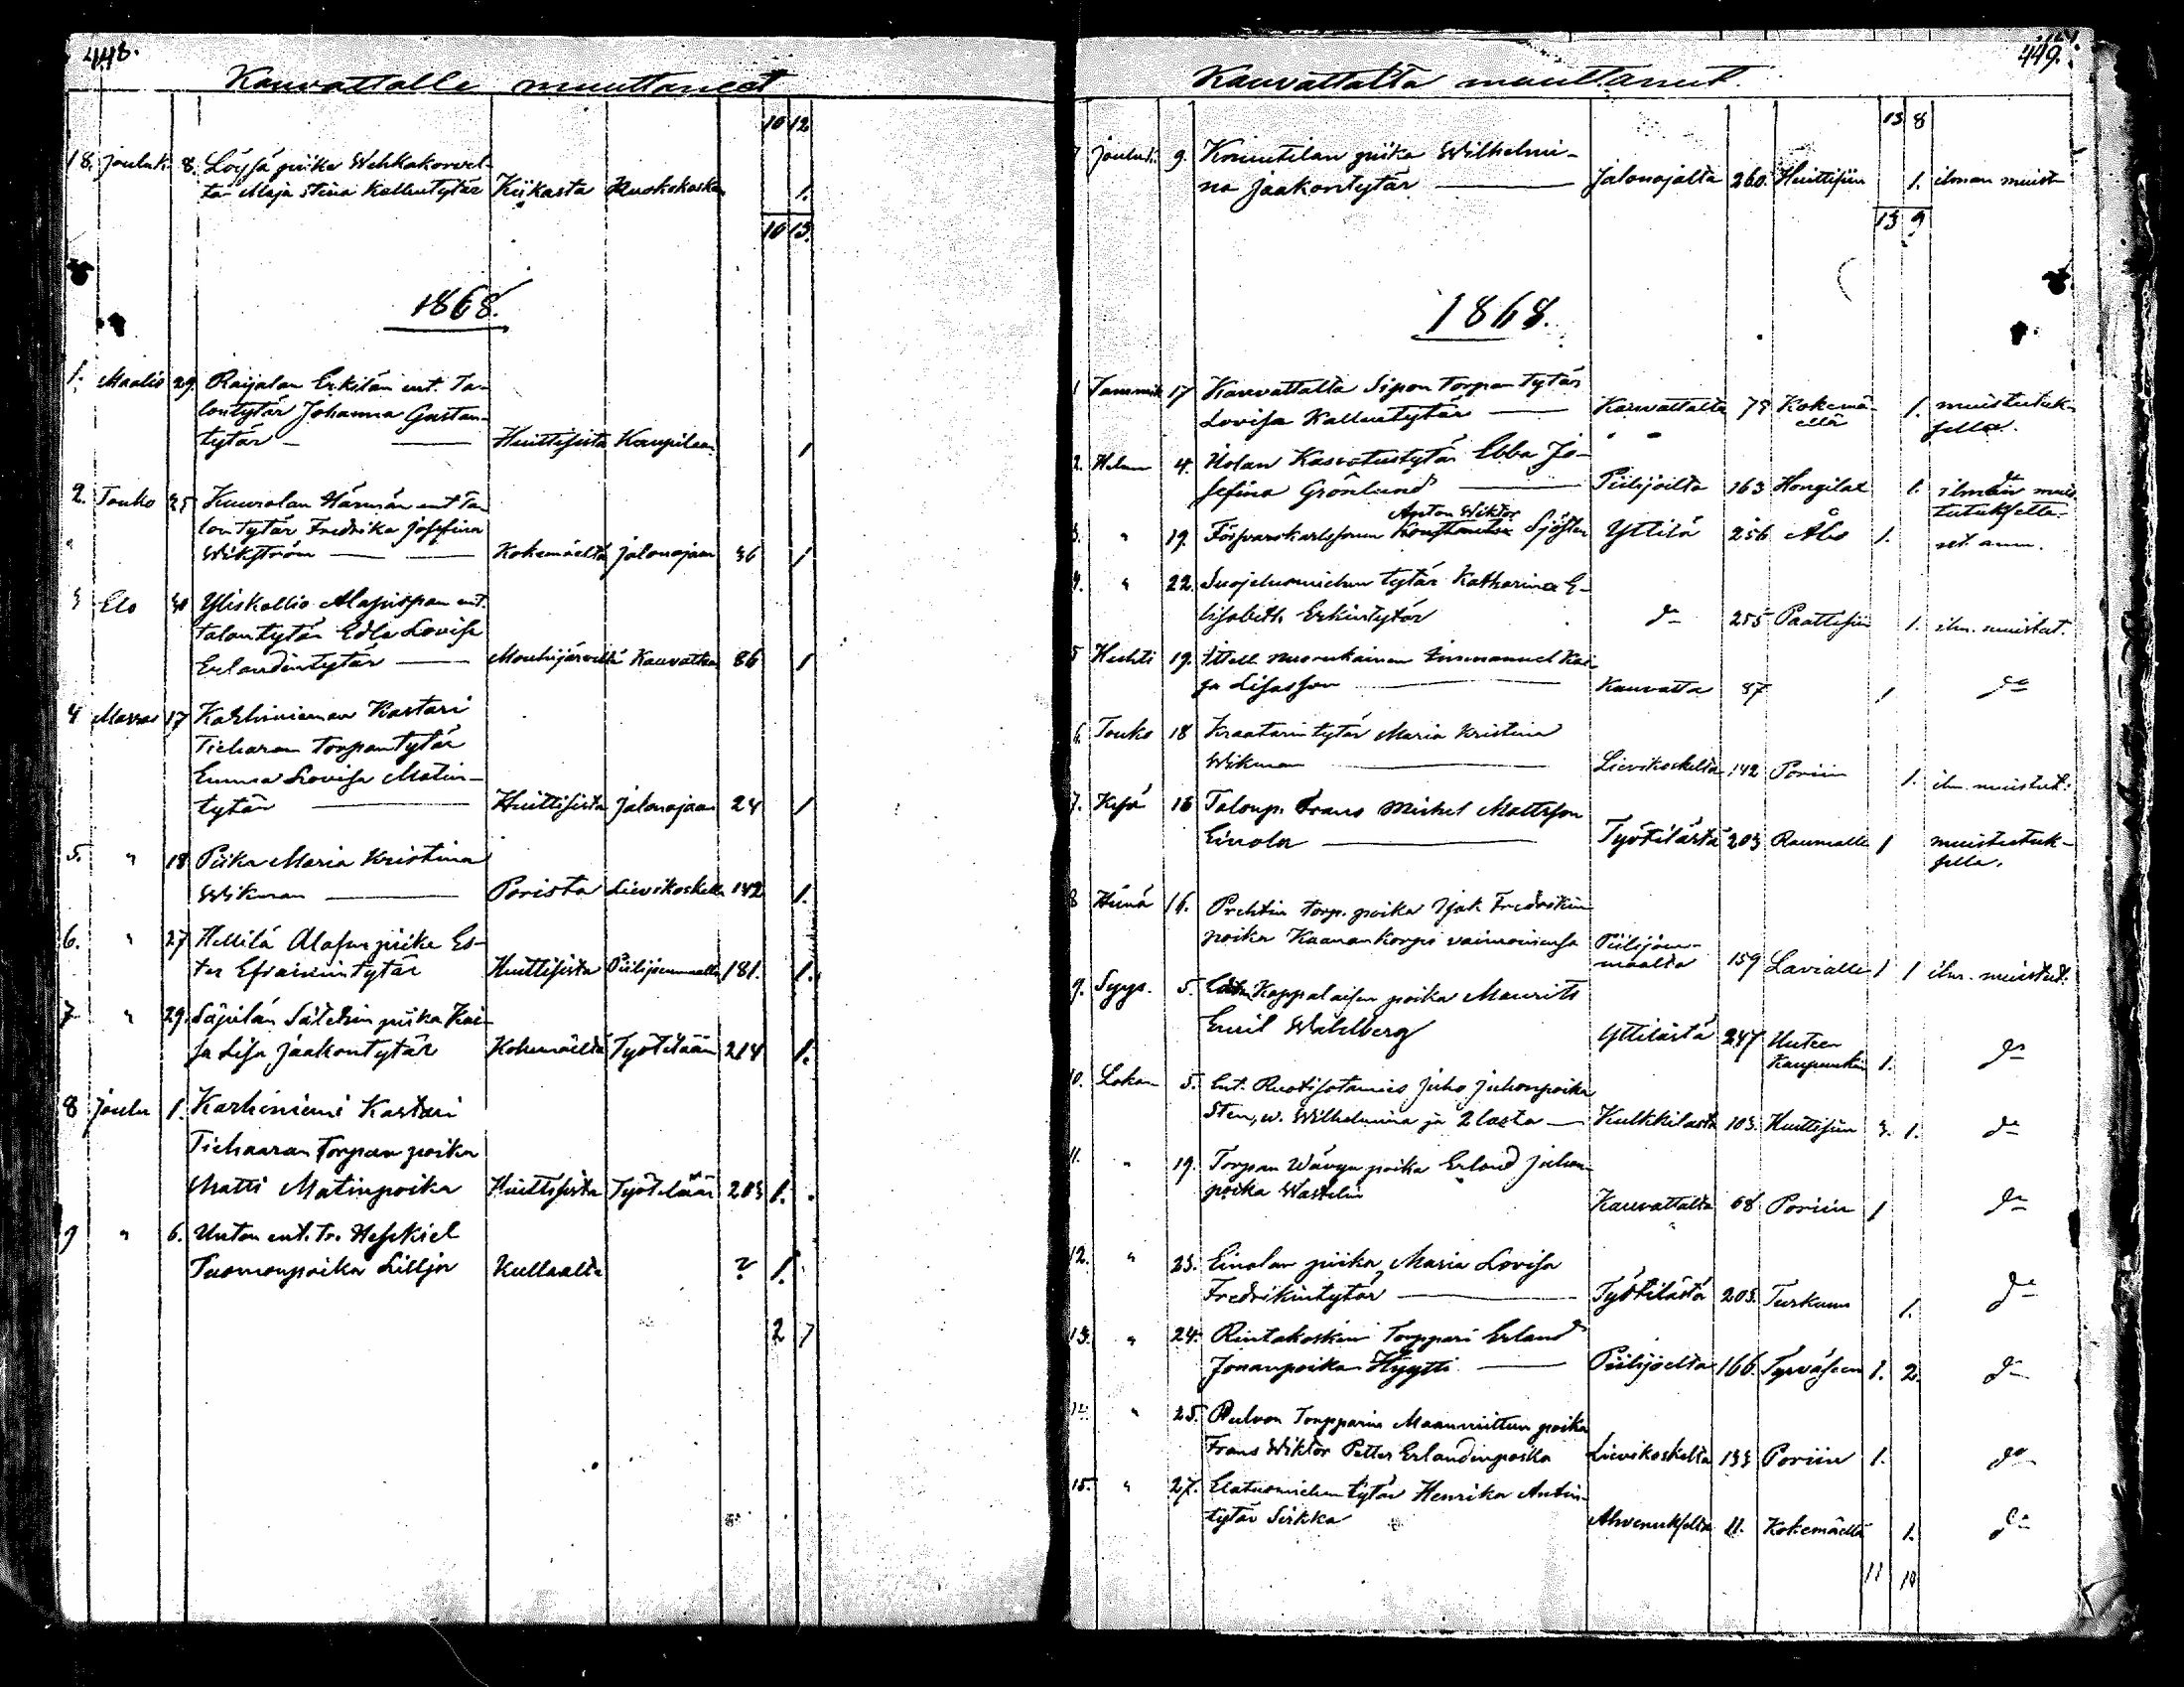 448.
Kauvattalle muuttaneet
10 12
18. Jouluk. 8. Löysä piika Wehkakorvel-
ta Maja Stina Kallentytär Kiikasta Kuokokoske 1.
10 13.
1868.
1. Maalis 29. Raijalan Erkilän ent. Ta-
lontytär Johanna Gustan-
tytär — Huittisista Kaupilaan 1
2. Touko 25 Kuurolan Härmän ent Ta-
lontytär Fredrika Josefina
Wikström — Kokemäeltä Jalonojaan 36 1
3 Elo 30 Yliskallio Alapispan ent.
talontytär Edla Lovisa
Erlandintytär — Mouhijärveltä Kauvattan 86 1
4 Marras 17 Karhiniemen Kastari
Tieharan Torpantytär
Emma Lovisa Matin-
tytär — Huittisista Jalonojaan 24 1
5. " 18 Piika Maria Kristina
Wikman — Porista Lievikoskelle 142 1.
6. " 27 Hellilä Alasen piika Es-
ter Efraimintytär Huittisista Piilijoenmaalle 181. 1.
7 " 29. Säpilän Sätekin piika Kai-
sa Lisa Jaakontytär Kokemäeltä Työtilään 214 1.
8 Joulu 1. Karhiniemi Kastari
Tieharan Torpan poika
Matti Matinpoika Huittisista Työtilään 203 1.
9 " 6. Unton ent. tr. Heskiel
Tuomonpoika Lillja Kullaalta ? 1.
2 7
449.
Kauvattalta muuttaneet.
13 8
7 Jouluk. 9. Kouutilan piika Wilhelmi-
na Jaakontytär — Jalonojalta 260. Huittisiin 1. ilman muist
13 9
1868.
1 Tammik 17 Kauvattalta Sipon torpan tytär
Lovisa Kallentytär — Kauvattalta 79 Kokemä- 1. muistutuk-
ellä sella.
2. Helm 4. Uolan Kasvatustytär Ebba Jo-
sefina Grönlund — Piilijoelta 163 Hongilae 1. ilman muis
tutuksetta.
Anton Wiktor
3. " 19. Försvarskarlssonen Sjösten Yttilä 256 Åbo 1. ut. anm.
4. " 22. Suojelusmiehen tytär Katharina E-
lisabeth Erkintytär do 255 Paattisiin 1. ilm. muistut.
5 Huhti 19. Itsell. nuorukainen Immanuel Kai-
sa Lisasson — Kauvatta 87 1 do
6. Touko 18 Kraatarin tytär Maria Kristina
Wikman — Lievikoskelta 142 Poriin 1. ilm. muistut.
7. Kesä 16 Taloup. Frans Mickel Mattsson
Einola — Työtilästä 203 Raumalle 1 muistutuk-
sella.
8 Heinä 16. Prehtin torp. poika Isak Fredrikin
poika Kaanankorpi vaimoinensa Piilijoen-
maalta 159 Lavialle 1 1 ilm. muistut.
9. Syys. 5. Kappalaisen poika Maurits
Emil Wahlberg Yttilästä 247 Uuteen
Kaupunkiin 1. do
10. Loka 5. Ent. Ruotisotamies Juho Juhonpoika
Sten, w. Wilhelmina ja 2 lasta — Kulkkilasta 103. Huittisiin 3. 1. do
11. " 19. Torpan Wävyn poika Erland Juhon
poika Wastelin Kauvattalta 68 Poriin 1 do
12. " 23. Einolan piika Maria Lovisa
Fredrikintytär — Työtilästä 203. Turkuun 1. do
13. " 24. Rintakosken Torppari Erland
Jonanpoika Hyytti — Piilijoelta 166. Tyrvääseen 1. 2. do
" 25. Pulvon Torpparin Maanmittun poika
Frans Wiktor Petter Erlandinpoika Lievikoskelta 133 Poriin 1. do
15. " 27. Elatusmiehen tytär Henrika Antin-
tytär Sirkka Ahvenukselta 11. Kokemäelle 1. do
11 10